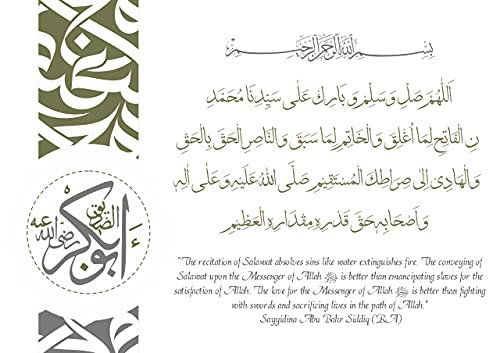 بِسْمِ اللهِ الرَّحْمٰنِ الرَّحِيْمِ
اَللّٰهُمَّ صَلِّ وَسَلِّمْ وَبَارِكْ عَلٰى سَيِّدِنَا مُحَمَّدِ
نِ الْفَاتِحِ لِمَا اُغْلِقَ وَالْخَاتِمِ لِمَا سَبَقَ وَالنَّاصِرِ الْحَقَّ بِالْحَقِّ
وَالْهَادِيْ اِلٰى صِرَاطِكَ الْمُسْتَقِيْمِ صَلَّى اللهُ عَلَيْهِ وَعَلٰى اٰلِهِ
وَاَصْحَابِهٖ حَقَّ قَدْرِهٖ وَمِقْدَارِهِ الْعَظِيْمِ
أبو بكر الصديق رضي الله عنه
"The recitation of Salawat absolves sins like water extinguishes fire. The conveying of
Salawat upon the Messenger of Allah ﷺ is better than emancipating slaves for the
satisfaction of Allah. The love for the Messenger of Allah ﷺ is better than fighting
with swords and sacrificing lives in the path of Allah."
Sayyidina Abu Bakr Siddiq (R.A)